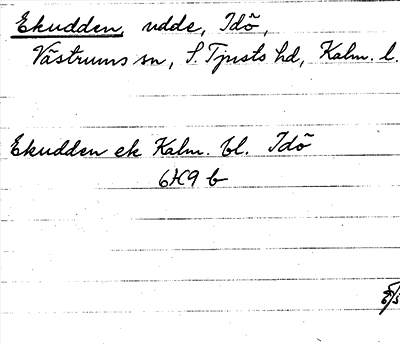 Ekudden, udde, Idö,
Västrums sn, S. Tjusts hd, Kalm. l.
Ekudden ek Kalm. bl. Idö
6H9 b